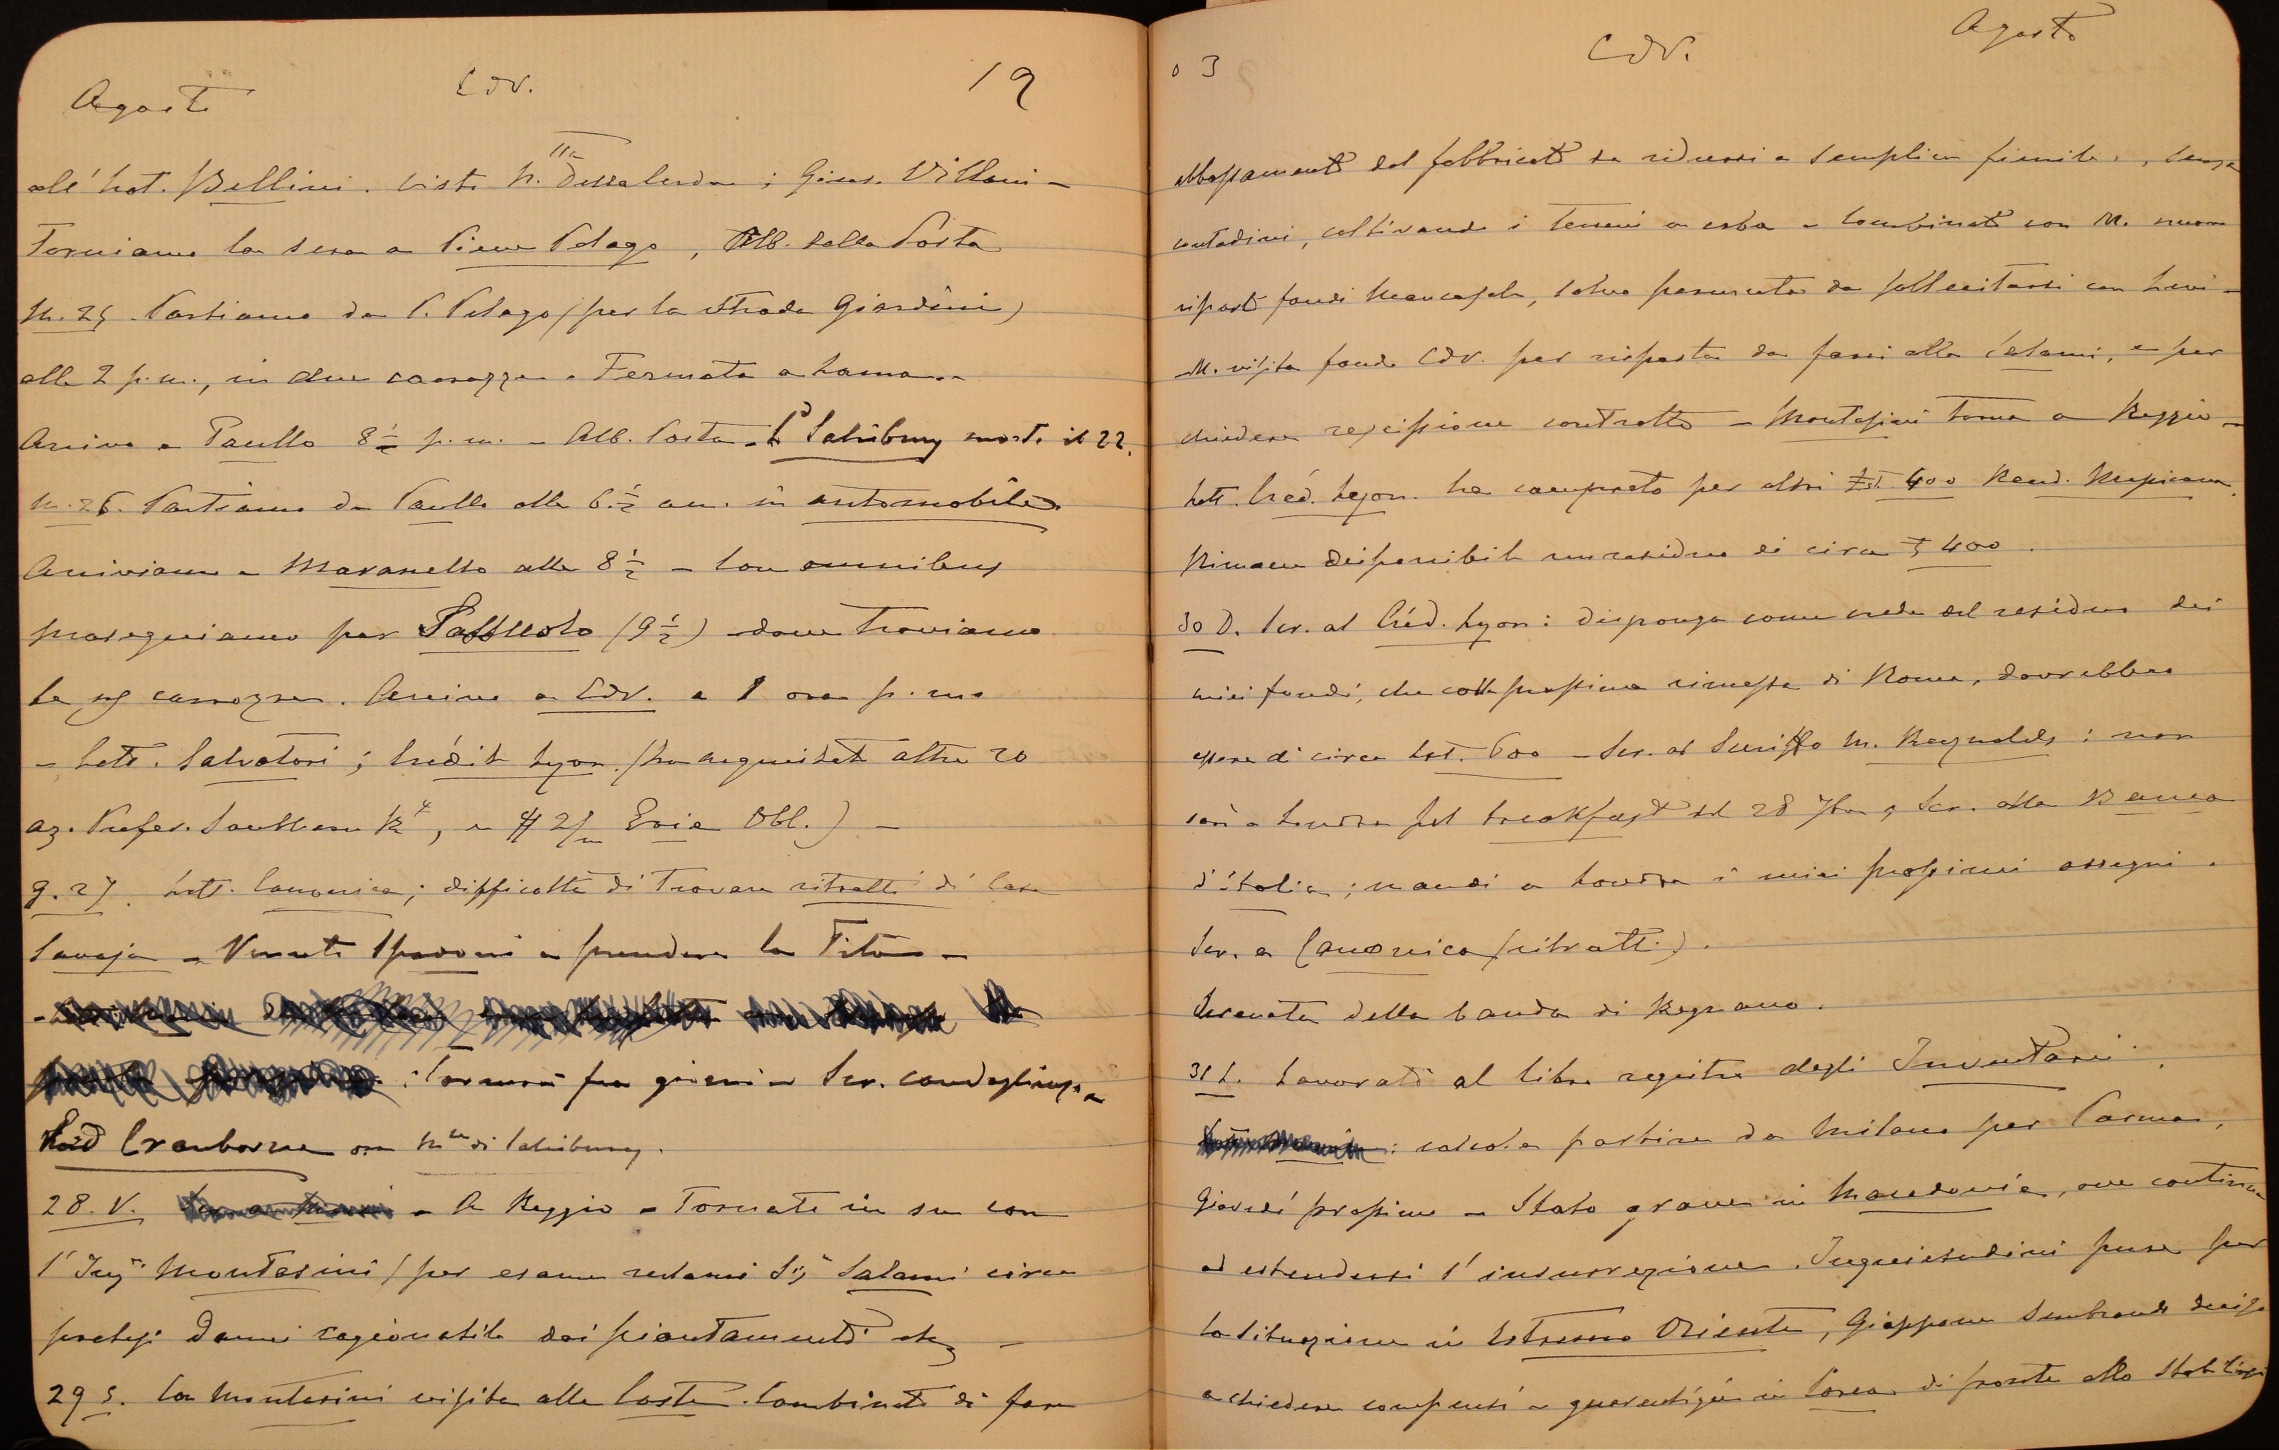 Agosto CdV. 19
all'hot. Bellini. Visto ; Gius. Villani -
Torniamo la sera a Pieve Pelago, Alb. della Posta
M. 25. Partiamo da P. Pelago (per la strada Giardini)
alle 2 p.m., in due carrozze. Fermata a Lama -
Arrivo a Paullo 8½ p.m. - Alb. Posta - Ld Salisbury morto il 22.
M. 26. Partiamo da Paullo alle 6½ am. in automobile.
Arriviamo a Maranello alle 8½ - Con omnibus
proseguiamo per Sassuolo (9½) - dove troviamo
le carrozze. Arrivo a CdV. a 1 ora p.m.
- Lett. Salvatori; Crédit Lyon. (ha acquistato altre 20
az. Prefer. Southern Ry, e $ 2/m Erie Obl.) -
G. 27. Lett. Canonica; difficoltà di trovare ritratti di Casa
Savoja - Venuto Spadoni a prendere la Tito -
: Tornerà fra giorni - Scr. condoglianze a
Lord Cranborne ora Mse di Salisbury.
28. V. - A Reggio - Tornato in su con
l'Ing. Montasini (per esame reclami Sig. Salami circa
pretesi danni ragionabile dei piantamenti etc -
29 S. Con Montasini visita alle Coste. Combinato di fare
03 CdV. Agosto
abbassamento del fabbricato da ridursi a semplice fienile, senza
contadini, coltivando i terreni a erba - Combinato con M. nuovo
riparto fondi Mancasale, salvo permuta da sollecitarsi con Levi -
M. visita fondo CdV. per risposta da farsi alla Salami, e per
chiedere rescissione contratto - Montasini torna a Reggio -
Lett. Créd. Lyon. ha comprato per altri Lst 400 Rend. Messicana.
Rimane disponibile un residuo di circa £ 400.
30 D. Scr. al Créd. Lyon: disponga come crede del residuo dei
miei fondi, che colla prossima rimessa di Roma, dovrebbero
essere di circa Lst. 600 - Scr. al Sceriffo M. Reynolds: non
sarò a Londra pel breakfast del 28 7bre; Scr. alla Banca
d'Italia; mandi a Londra i miei prossimi assegni.
Scr. a Canonica (ritratti).
Serenata della banda di Regnano.
31 L. Lavorato al libro registro degli Inventari.
: calcola partire da Milano per Parma,
Giovedì prossimo - Stato grave in Macedonia, ove continua
ad estendersi l'insurrezione. Inquietudini pure per
la situazione in Estremo Oriente, Giappone sembrando deciso
a chiedere compensi e guarentigie in Corea di fronte allo stabilirsi